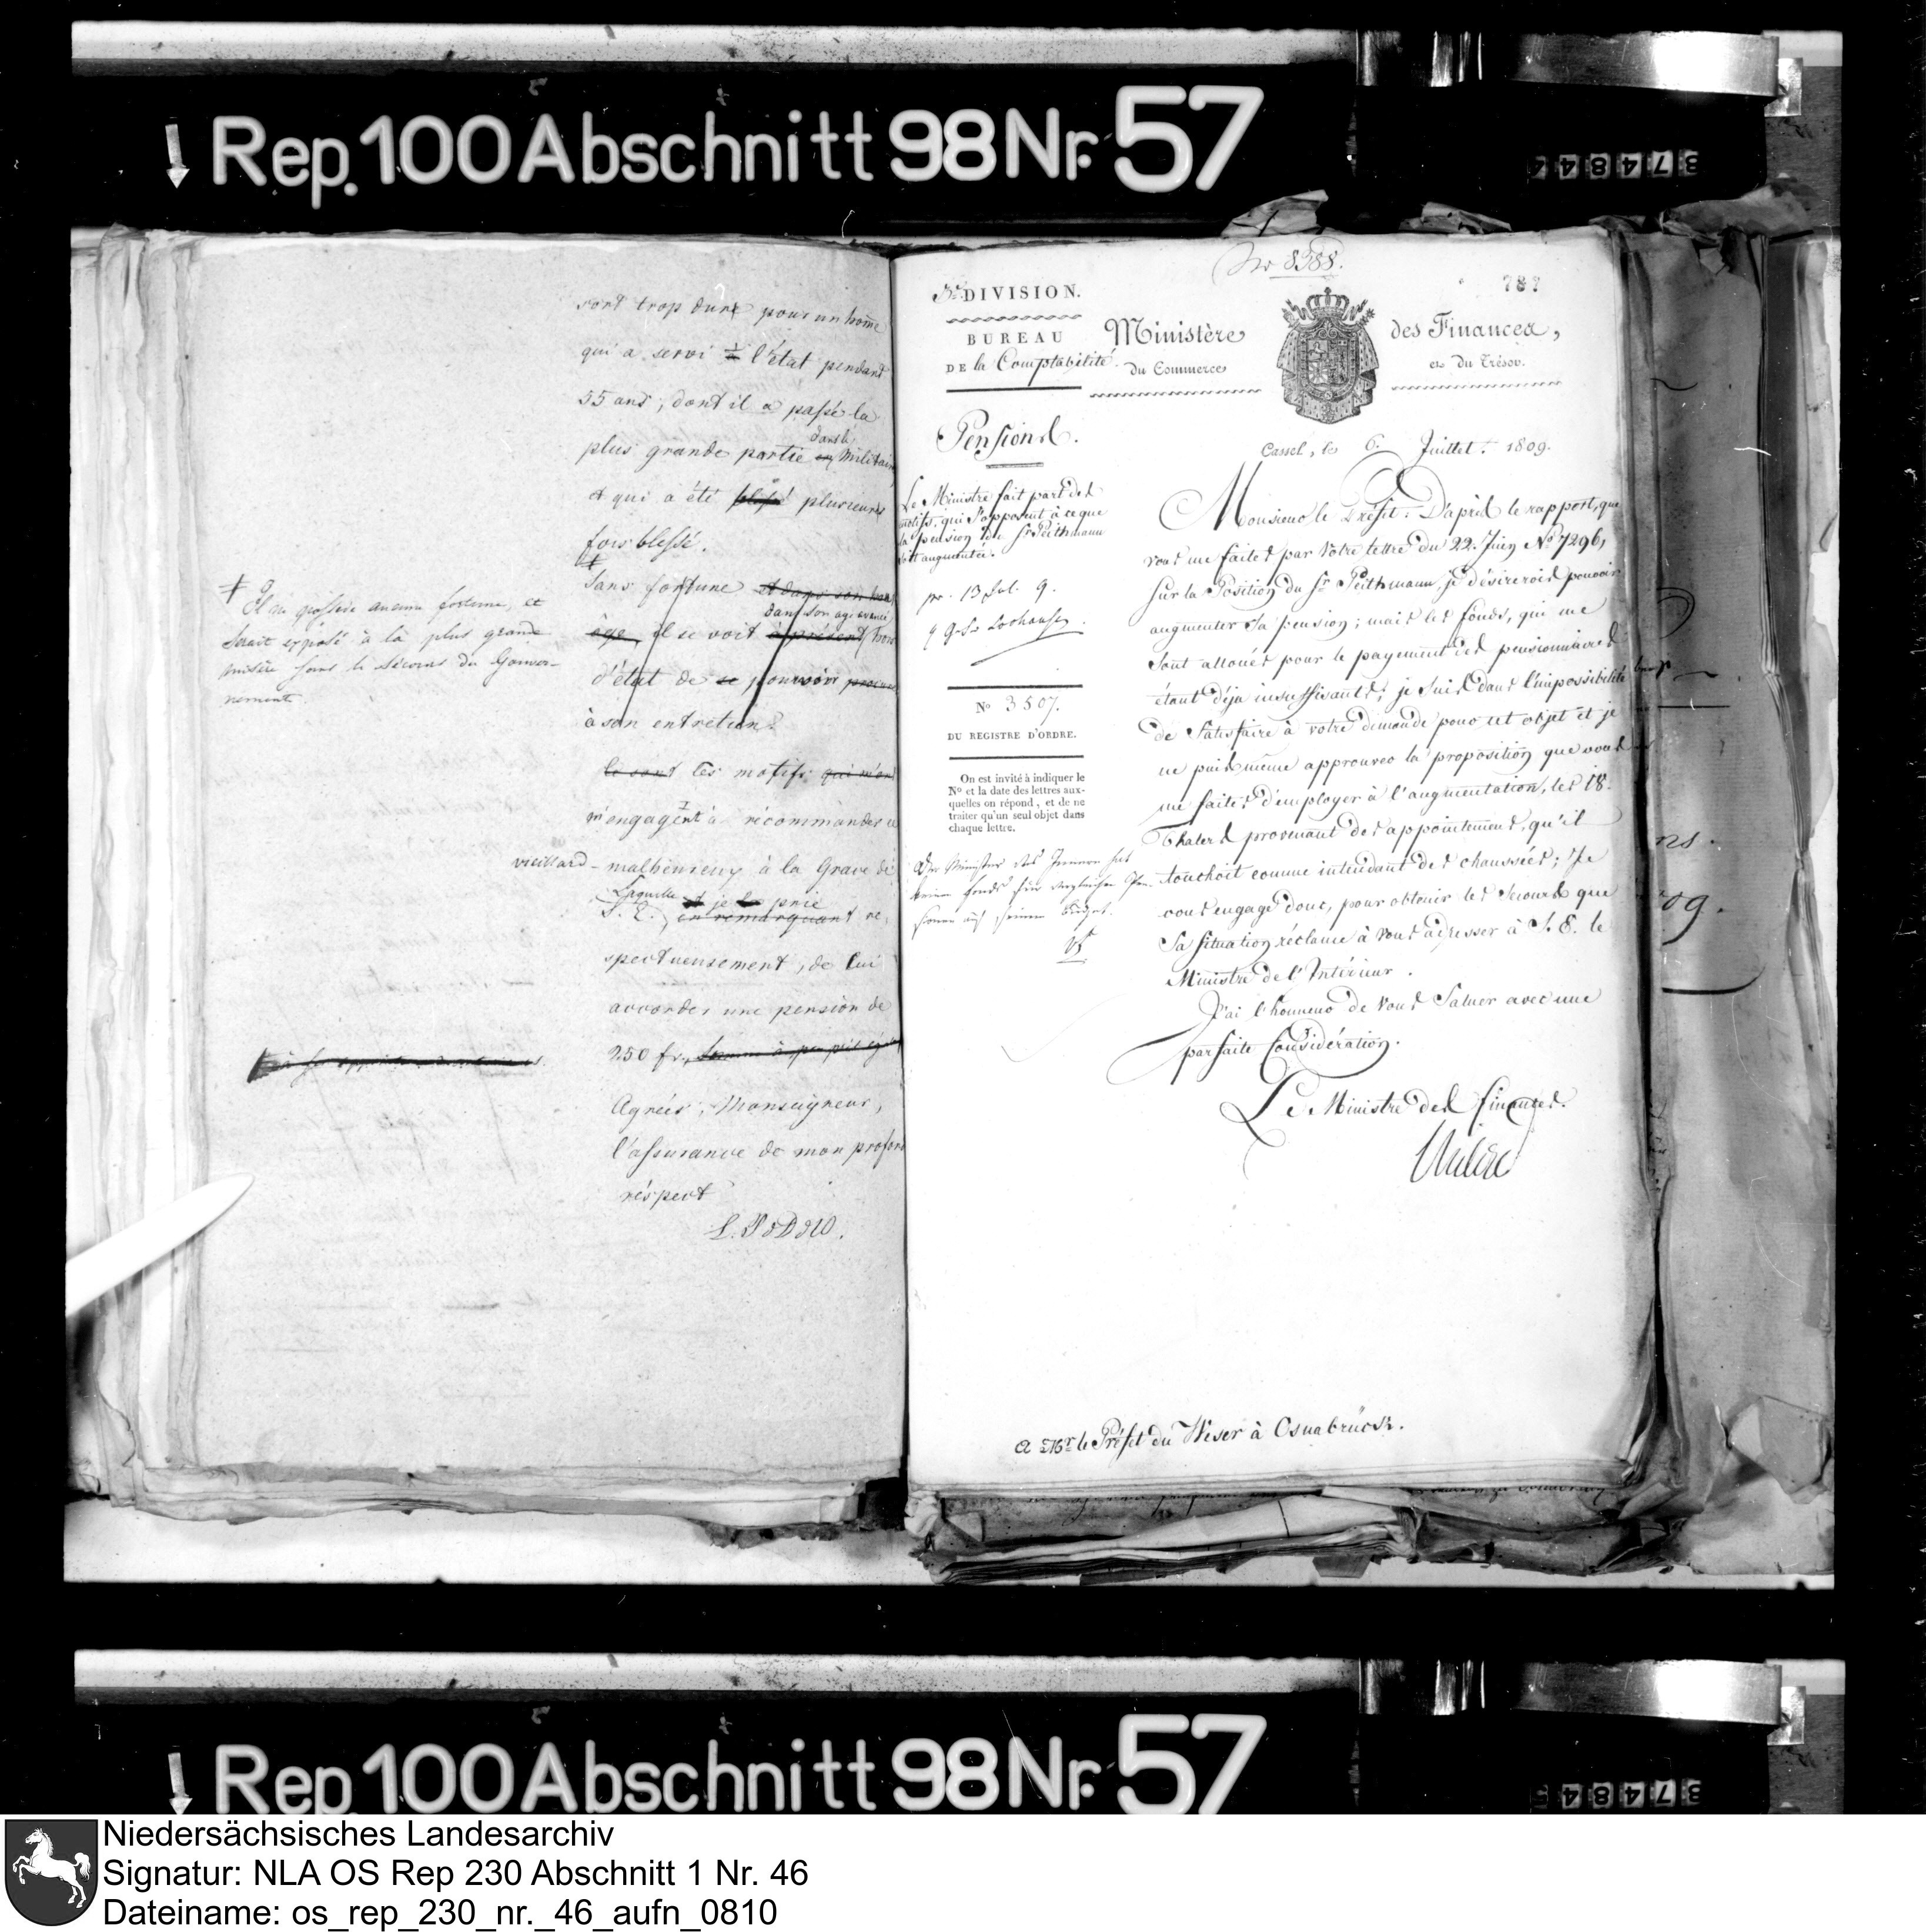 Rep. 100 Abschnitt 98 Nr. 57
37484
sont trop dure pour un home
qui a servi l'état pendant
55 ans, dont il a passé la
plus grande partie dans le Militaire
et qui a été plusieurs
fois blessé.
Sans fortune et dans son
dans son age avancé
âge, il se voit à présent hors
d'état de se pourvoir
à son entretien.
Il ne possède aucune fortune, et
serait exposé à la plus grande
misère sans le sécours du Gouver-
nement.
ce sont Ces motifs qui m'ont
m'engagent à récommander ce
vieillard malheureux à la Grace de
Laquelle et je la prie
S. E., en remarquant re-
spectueusement, de lui
accorder une pension de
250 fr., Somme à peu près égale
Agréés, Monseigneur,
l'assurance de mon profond
réspect
L. P. d. D. d. W.
No 8388.
787
3e DIVISION.
BUREAU
DE la Comptabilité.
Ministère des Finances,
du Commerce et du Trésor.
Pensions.
Cassel, le 6 Juillet 1809.
Le Ministre fait part des
motifs, qui s'opposent à ce que
la pension de Sr Peithmann
soit augmentée.
pr. 13 Jul. 9.
No 3507.
DU REGISTRE D'ORDRE.
On est invité à indiquer le
No et la date des lettres aux-
quelles on répond, et de ne
traiter qu'un seul objet dans
chaque lettre.
Der Minister des Innern hat
keinen fonds für dergleichen Pen-
sionen auf seinem Budget.
Monsieur le Préfet. D'après le rapport, que
vous me faites par Votre lettre du 22. Juin No 7296,
sur la Position du Sr Peithmann, je désirerois pouvoir
augmenter sa pension; mais les fonds, qui me
sont alloués pour le payement des pensionnaires
étant déja insuffisants, je suis dans l'impossibilité
de satisfaire à votre demande pour cet objet et je
ne puis même approuver la proposition que vous
me faites d'employer à l'augmentation, les 18.
Thalers provenant des appointements, qu'il
touchoit comme intendant des chaussées; Je
vous engage donc, pour obtenir les Secours que
sa situation réclame à Vous adresser à S. E. le
Ministre de l'Intérieur.
J'ai l'honneur de Vous Saluer avec une
parfaite Considération.
Le Ministre des finances.
A Mr. le Préfet du Weser à Osnabrück.
Rep. 100 Abschnitt 98 Nr. 57
37484
Niedersächsisches Landesarchiv
Signatur: NLA OS Rep 230 Abschnitt 1 Nr. 46
Dateiname: os_rep_230_nr._46_aufn_0810